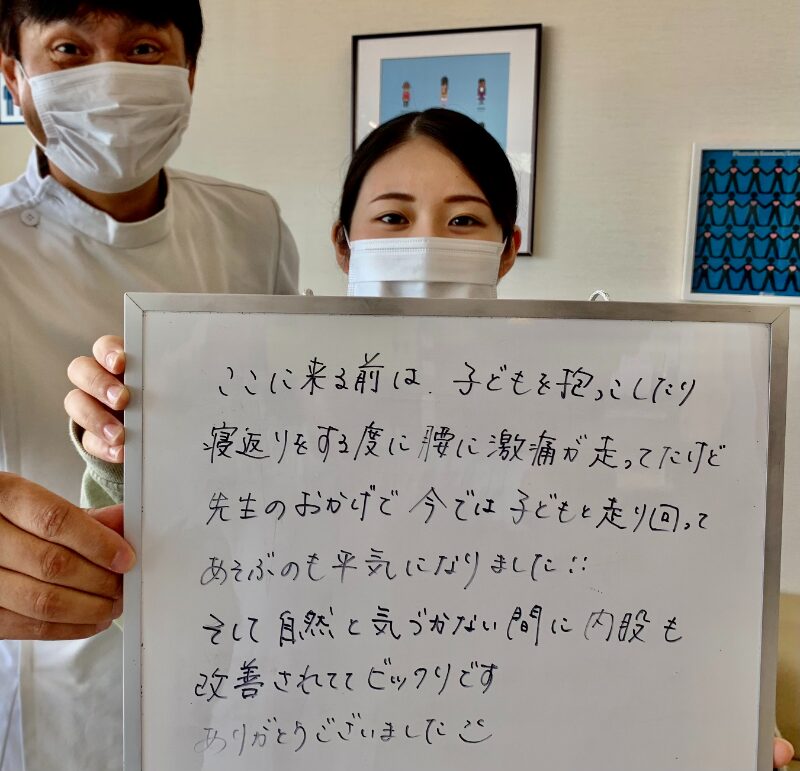 ここに来る前は、子どもを抱っこしたり
寝返りをする度に腰に激痛が走ってたけど
先生のおかげで今では子どもと走り回って
あそぶのも平気になりました!!
そして自然と気づかない間に内股も
改善されててビックリです
ありがとうございました